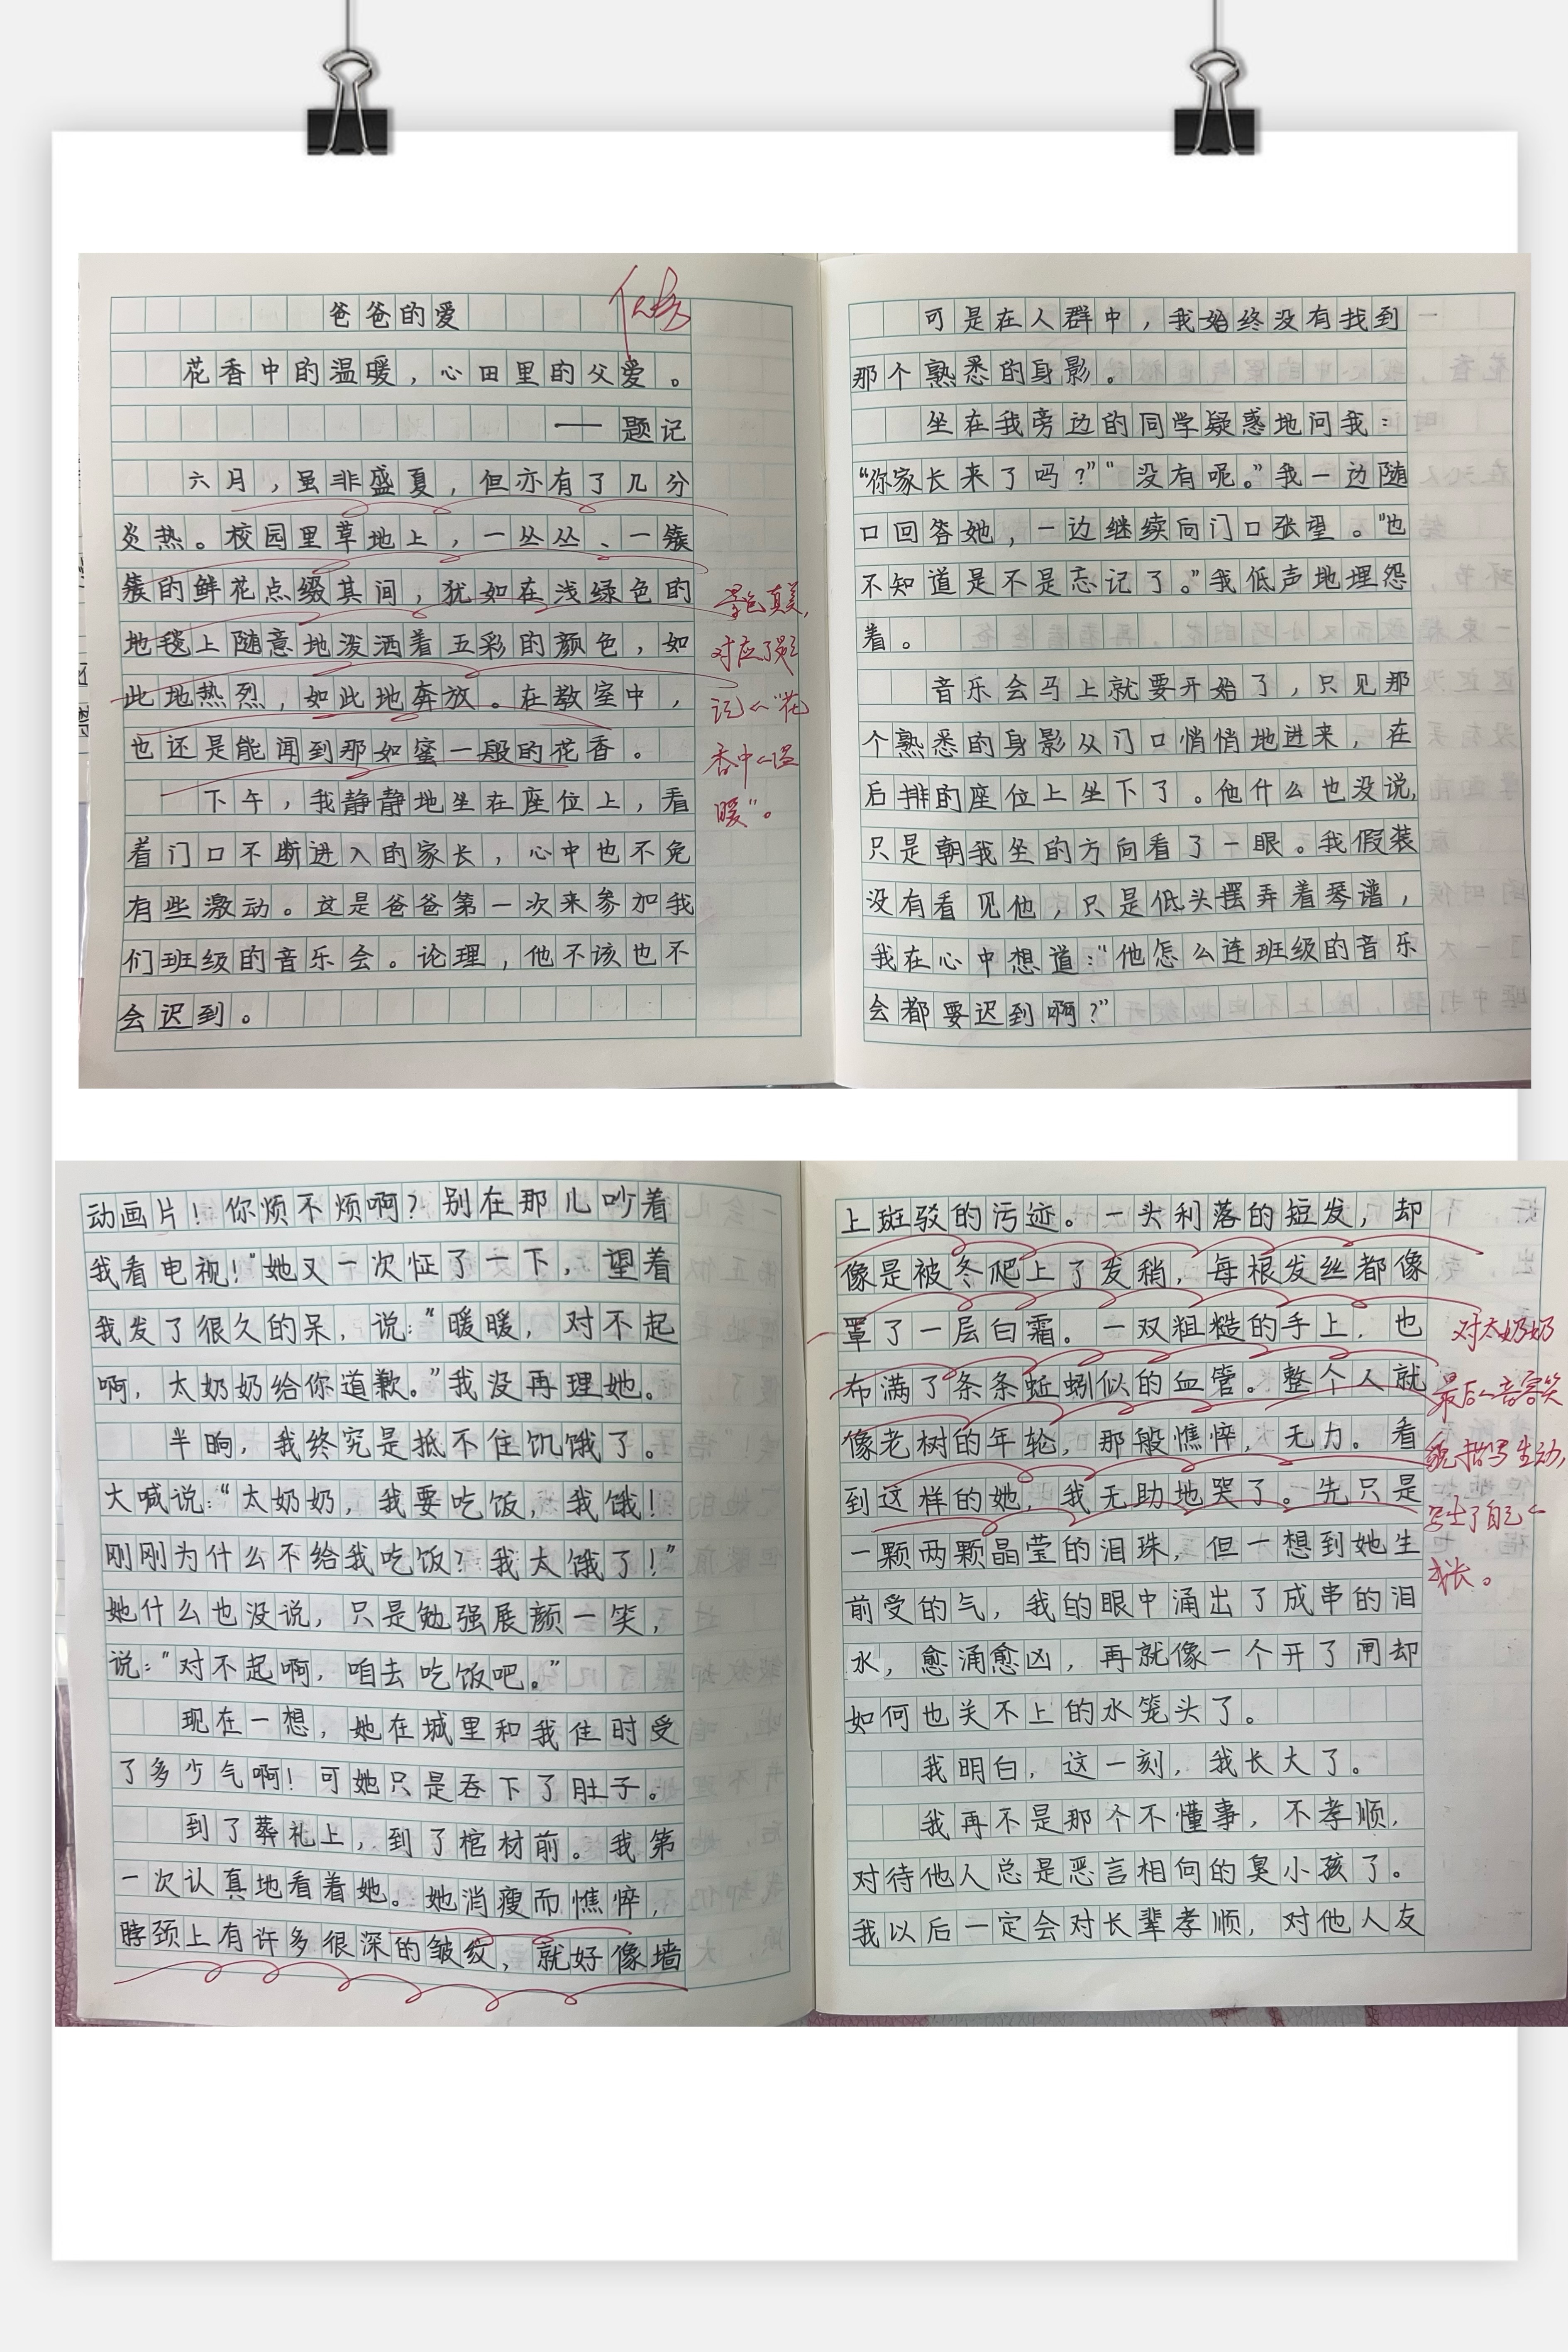 爸爸的爱
优秀
花香中的温暖，心田里的父爱。
—— 题记
六月，虽非盛夏，但亦有了几分
炎热。校园里草地上，一丛丛、一簇
簇的鲜花点缀其间，犹如在浅绿色的
地毯上随意地泼洒着五彩的颜色，如
此地热烈，如此地奔放。在教室中，
也还是能闻到那如蜜一般的花香。
下午，我静静地坐在座位上，看
着门口不断进入的家长，心中也不免
有些激动。这是爸爸第一次来参加我
们班级的音乐会。论理，他不该也不
会迟到。
景色真美，
对应了题
记的“花
香中的温
暖”。
可是在人群中，我始终没有找到
那个熟悉的身影。
坐在我旁边的同学疑惑地问我：
“你家长来了吗？”“没有呢。”我一边随
口回答她，一边继续向门口张望。“也
不知道是不是忘记了。”我低声地埋怨
着。
音乐会马上就要开始了，只见那
个熟悉的身影从门口悄悄地进来，在
后排的座位上坐下了。他什么也没说，
只是朝我坐的方向看了一眼。我假装
没有看见他，只是低头摆弄着琴谱，
我在心中想道：“他怎么连班级的音乐
会都要迟到啊？”
动画片！你烦不烦啊？别在那儿吵着
我看电视！”她又一次怔了一下，望着
我发了很久的呆，说：“暖暖，对不起
啊，太奶奶给你道歉。”我没再理她。
半晌，我终究是抵不住饥饿了。
大喊说：“太奶奶，我要吃饭，我饿！
刚刚为什么不给我吃饭？我太饿了！”
她什么也没说，只是勉强展颜一笑，
说：“对不起啊，咱去吃饭吧。”
现在一想，她在城里和我住时受
了多少气啊！可她只是吞下了肚子。
到了葬礼上，到了棺材前。我第
一次认真地看着她。她消瘦而憔悴，
脖颈上有许多很深的皱纹，就好像墙
上斑驳的污迹。一头利落的短发，却
像是被冬爬上了发稍，每根发丝都像
罩了一层白霜。一双粗糙的手上，也
布满了条条蚯蚓似的血管。整个人就
像老树的年轮，那般憔悴，无力。看
到这样的她，我无助地哭了。先只是
一颗两颗晶莹的泪珠，但一想到她生
前受的气，我的眼中涌出了成串的泪
水，愈涌愈凶，再就像一个开了闸却
如何也关不上的水笼头了。
我明白，这一刻，我长大了。
我再不是那个不懂事，不孝顺，
对待他人总是恶言相向的臭小孩了。
我以后一定会对长辈孝顺，对他人友
对太奶奶
最后的音容笑
貌描写生动，
写出了自己的
成长。